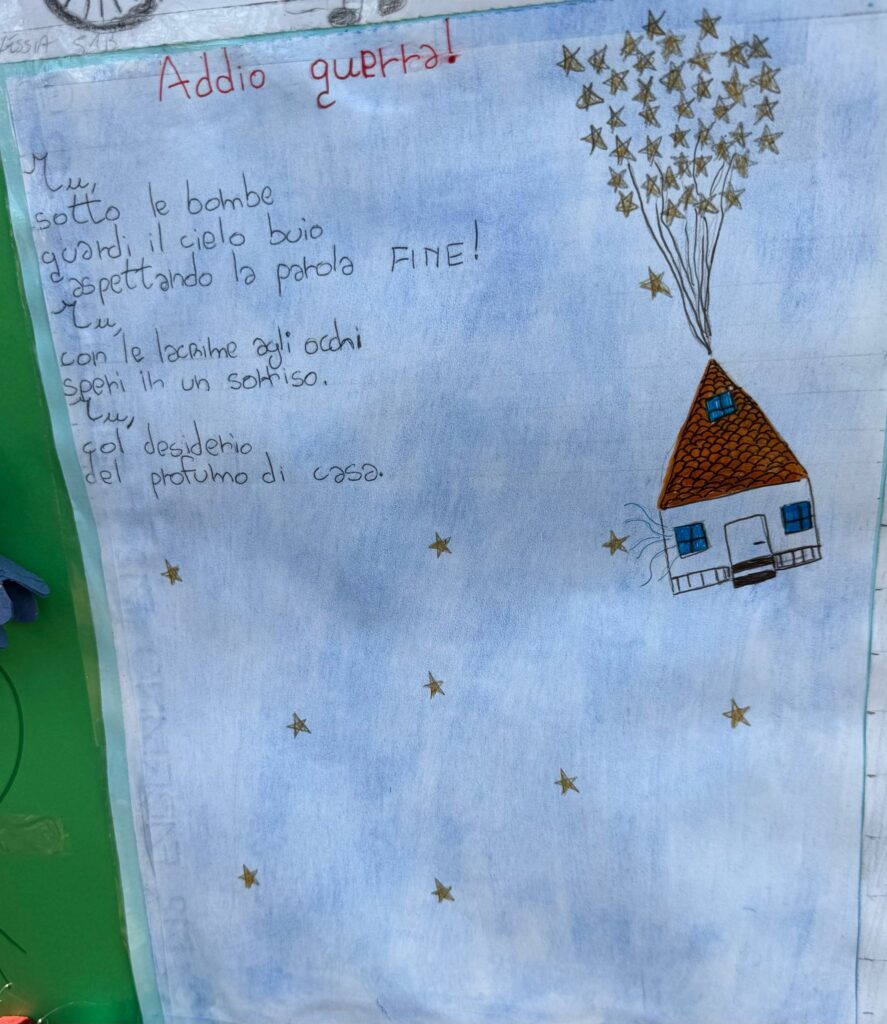 Addio guerra!
Tu,
sotto le bombe
guardi il cielo buio
aspettando la parola FINE!
Tu,
con le lacrime agli occhi
speri in un sorriso.
Tu,
col desiderio
del profumo di casa.